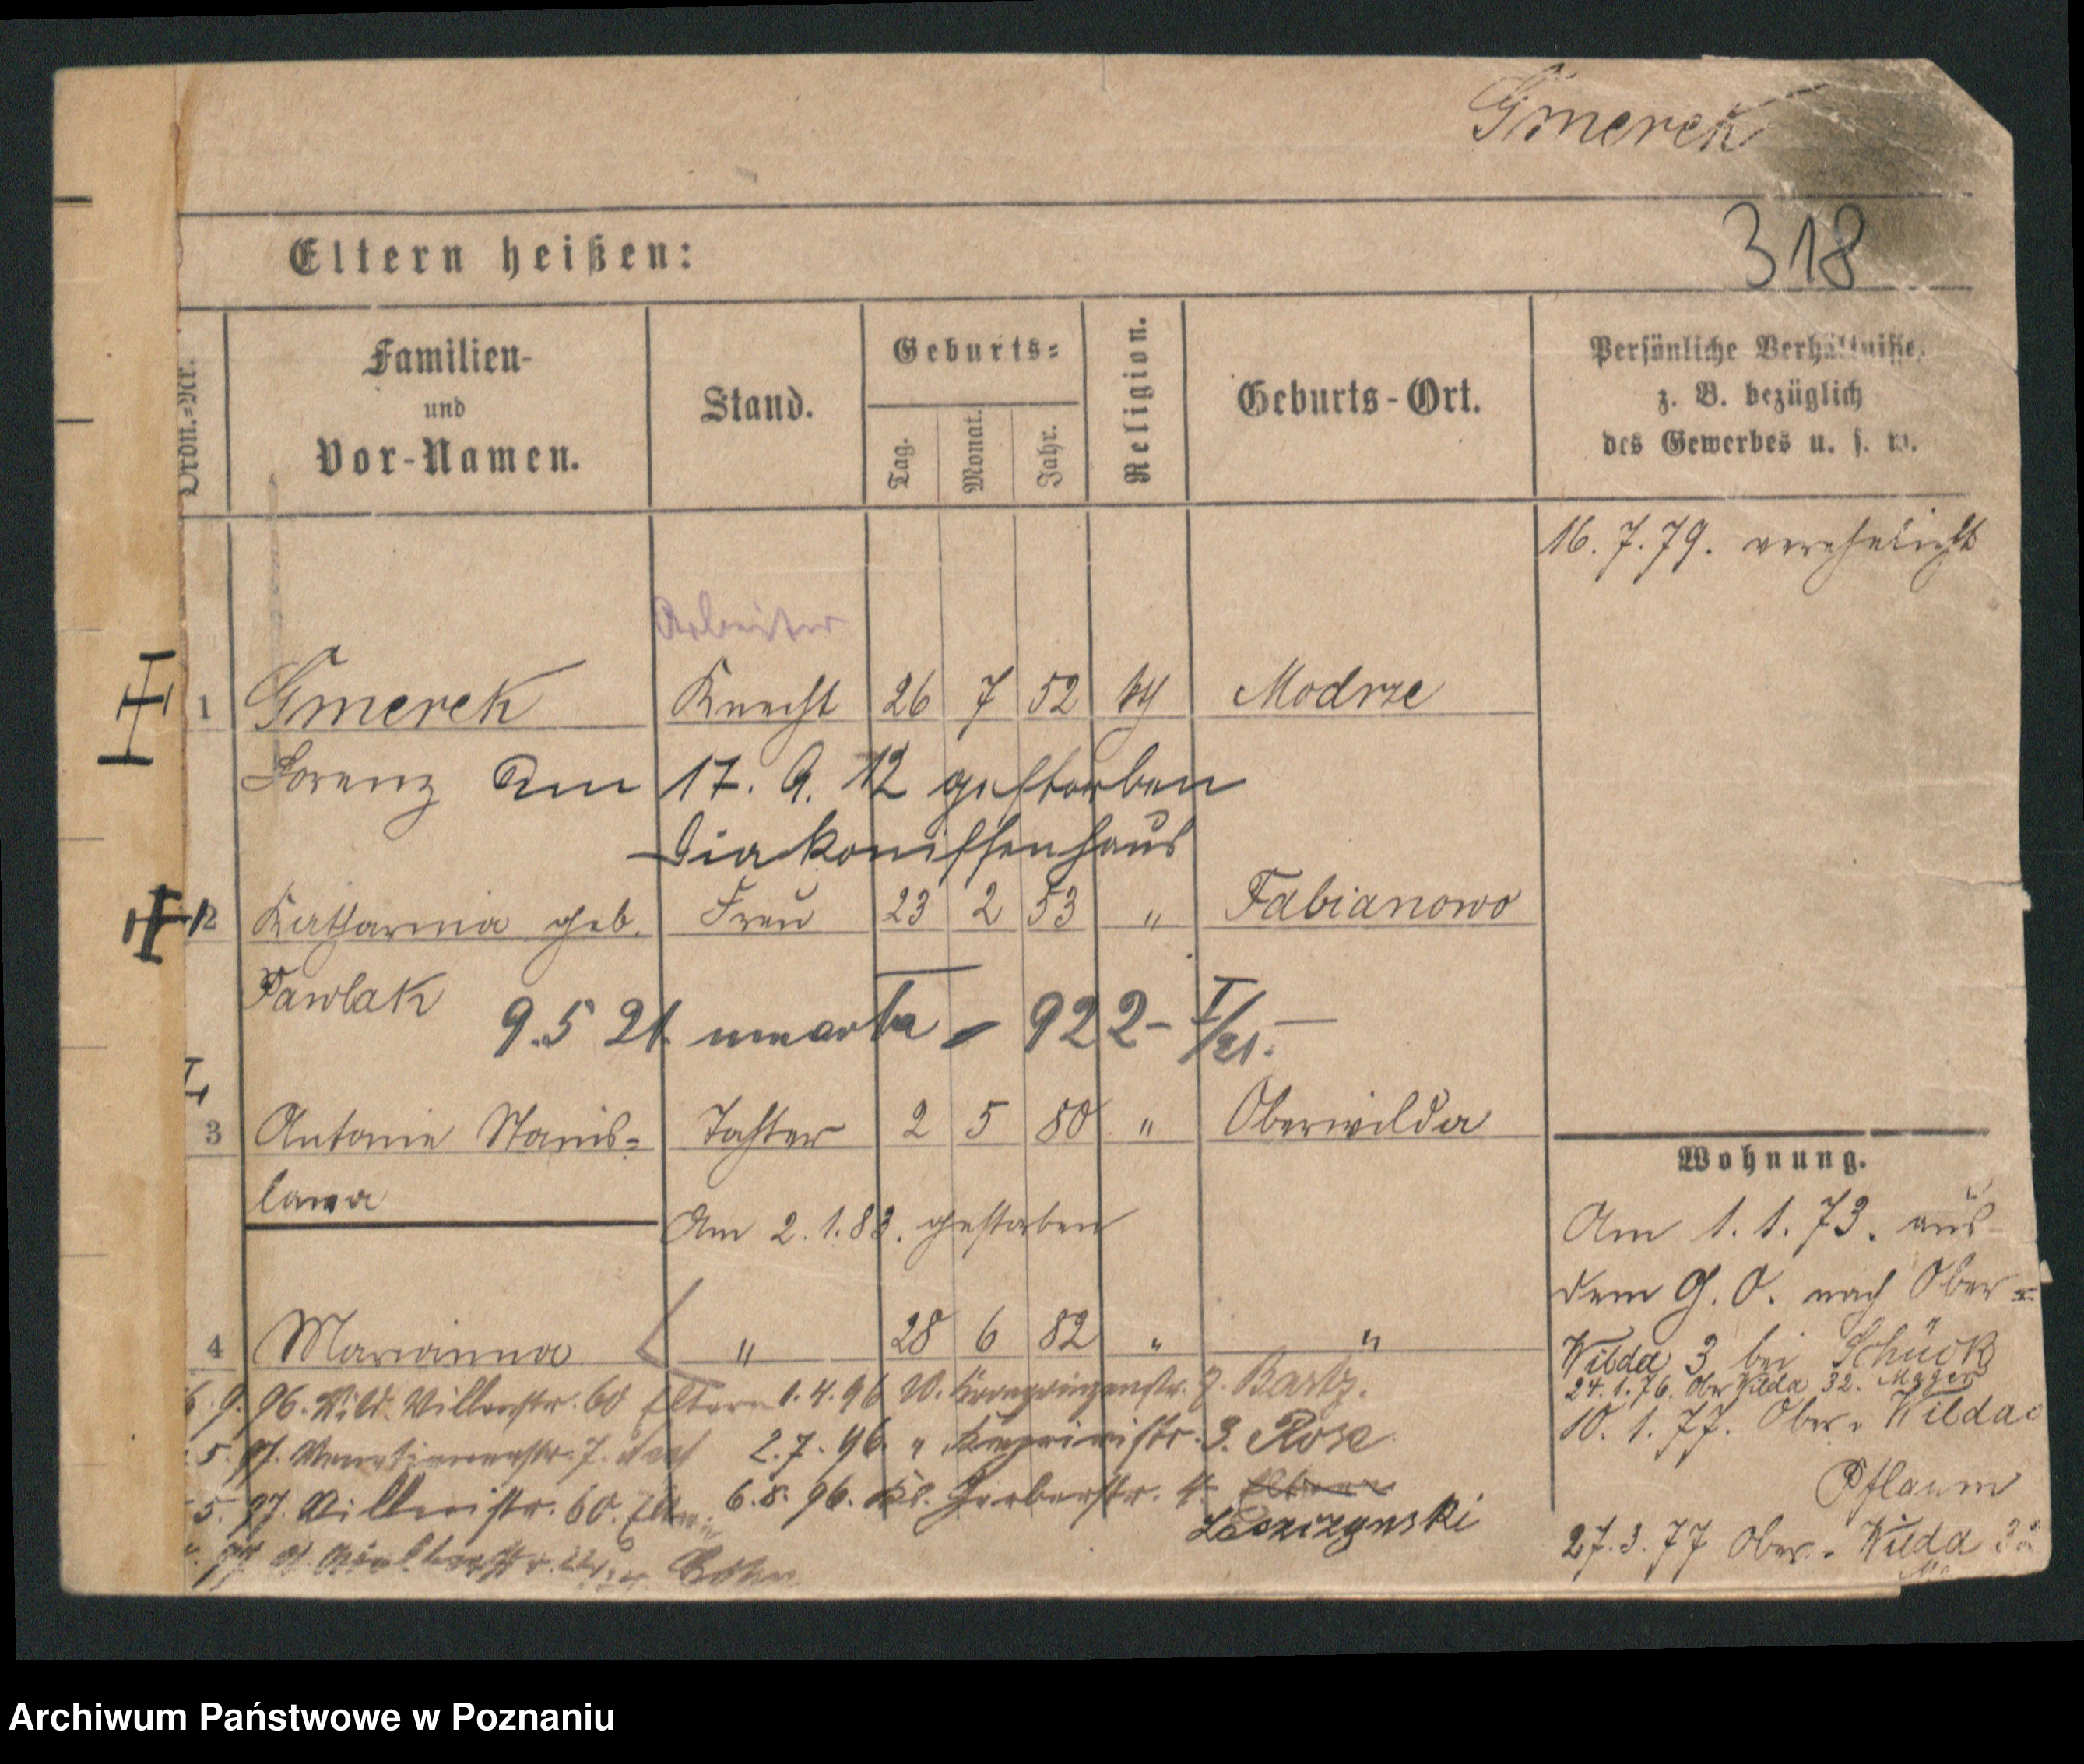 Gmerek
318
Eltern heißen:
Ordn.-Nr.
Familien-
und
Vor-Namen.
Stand.
Geburts-
Tag.
Monat.
Jahr.
Religion.
Geburts-Ort.
Persönliche Verhältnisse,
z. B. bezüglich
des Gewerbes u. s. w.
16. 7. 79. verehelicht
Arbeiter
1 Gmerek Knecht 26 7 52 Modrze
Lorenz Am 17. 9. 12 gestorben
Diakonissenhaus
2 Katharina geb. Frau 23 2 53 " Fabianowo
Pawlak
9. 5 21. umarła - 922-I/21.
3 Antonie Stanis- Tochter 2 5 80 " Oberwilda
lawa
Am 2. 1. 83. gestorben
4 Marianna " 28 6 82 " "
9. 96. Wild. 60 Eltern 1. 4. 96 W. Kronprinzenstr. Bartz.
5. 97. 7. 2. 7. 96. " 3. Rose
5. 97. 60. 6. 8. 96. Kl. Gerberstr. 4.
Wohnung.
Am 1. 1. 73. aus
dem G. O. nach Ober-
Wilda 3 bei Schück
24. 1. 76. Ober Wilda 32.
10. 1. 77. Ober-Wilda
Pflaum
27. 3. 77 Ober-Wilda
Archiwum Państwowe w Poznaniu